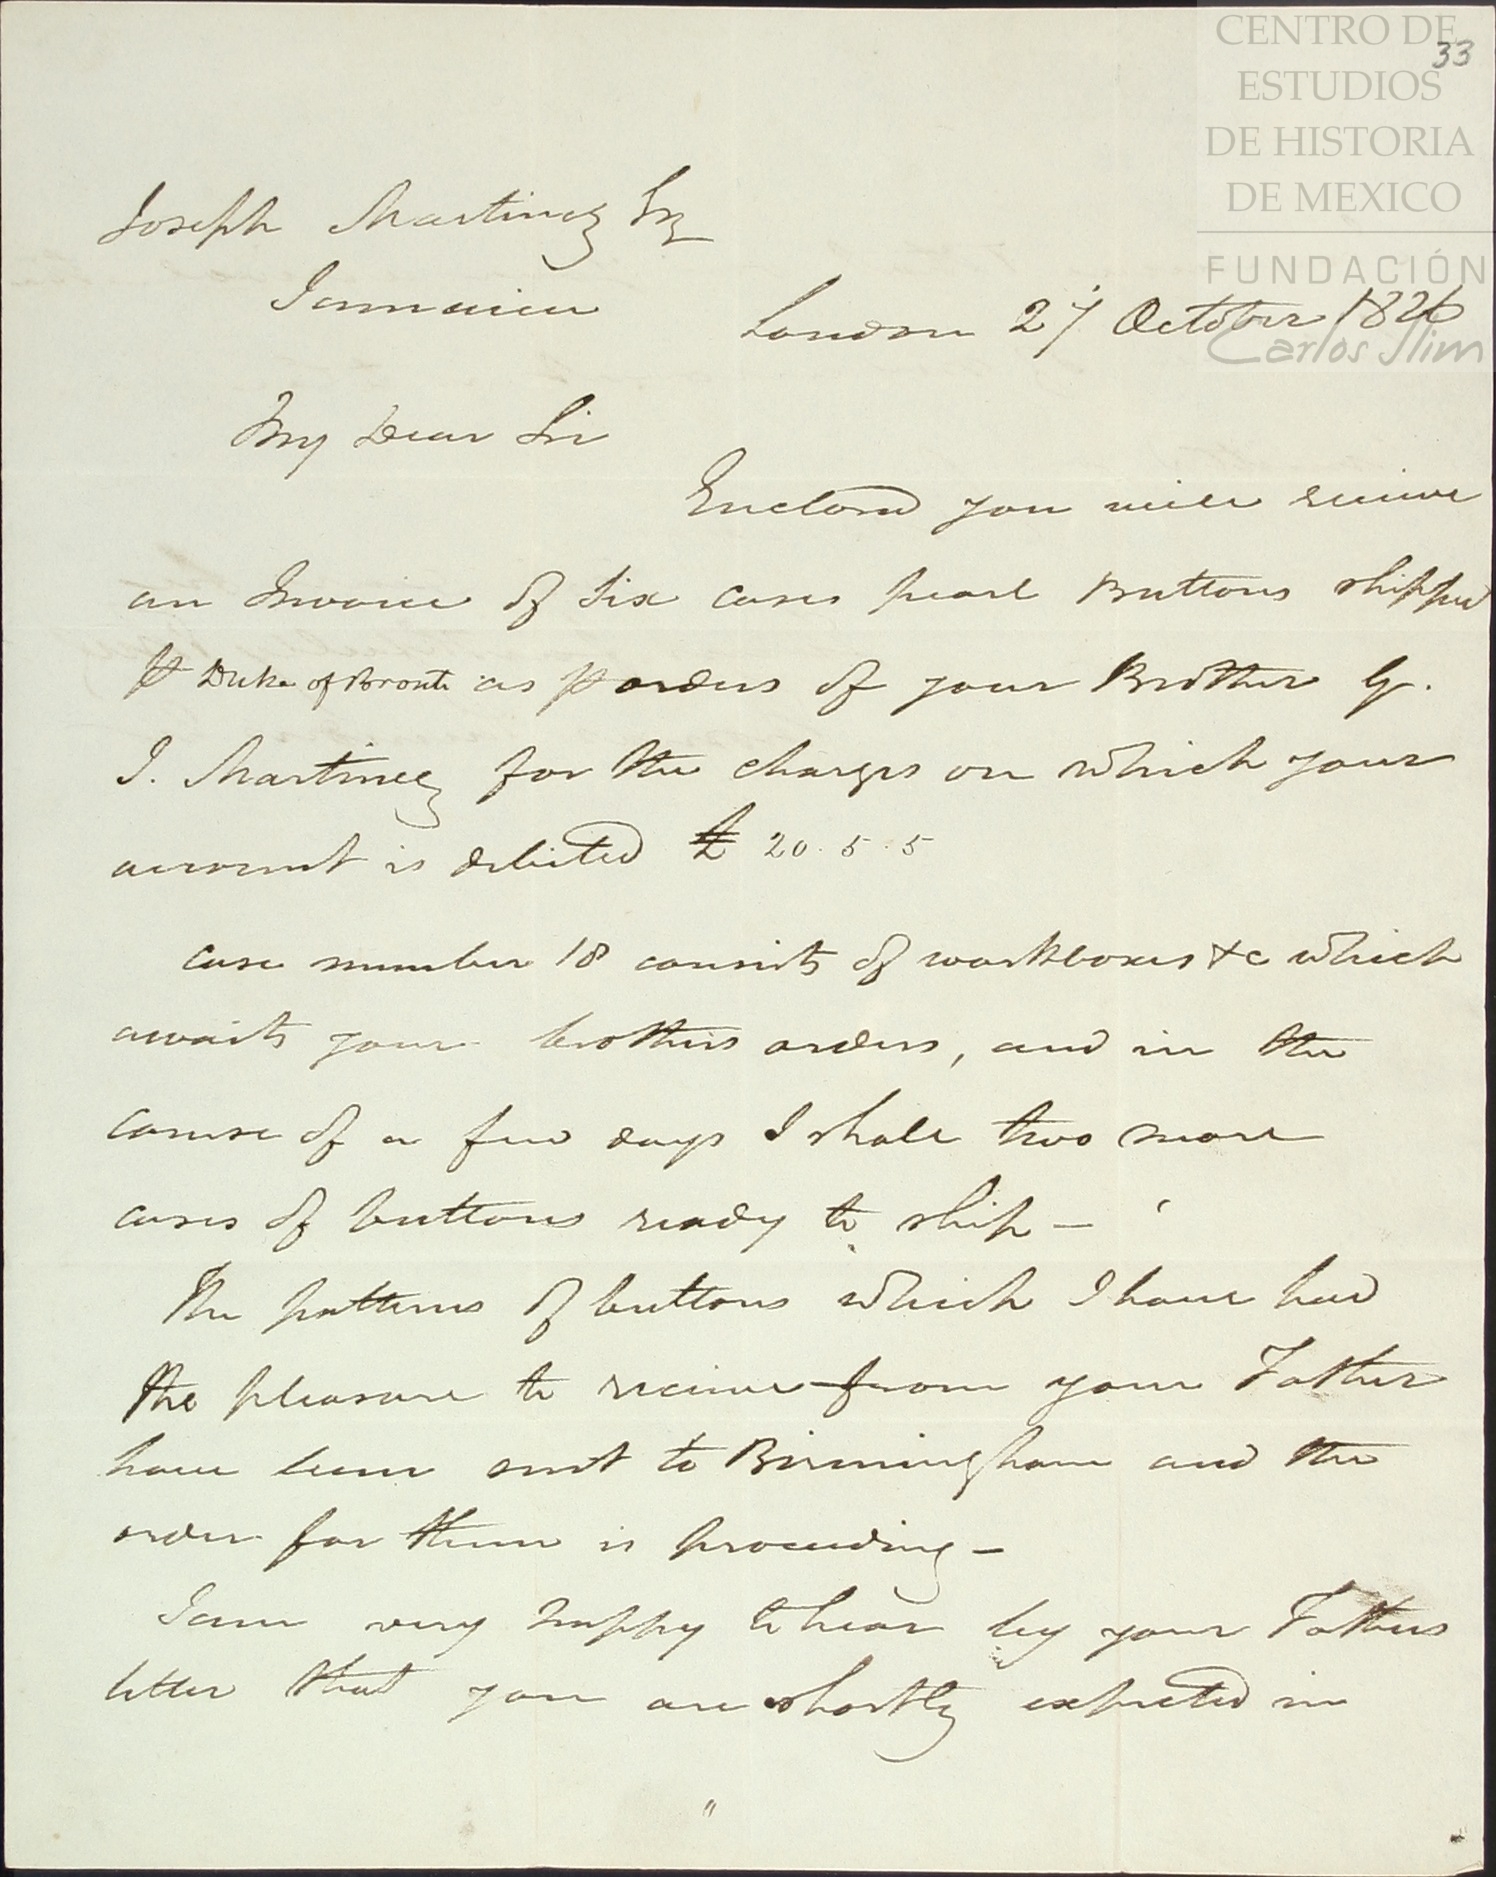 CENTRO DE
33
ESTUDIOS
DE HISTORIA
DE MEXICO
FUNDACIÓN
Carlos Slim
Joseph Martinez Esq
Jamaica
London 27 October 1826
My Dear Sir
Enclosed you will receive
an Invoice of Six cases pearl Buttons shipped
⅌ Duke of Bronte as ⅌ orders of your Brother G.
I. Martinez for the charges on which your
account is debited £ 20.5.5
Case number 18 consists of workboxes &c which
awaits your brothers orders, and in the
course of a few days I shall two more
cases of buttons ready to ship –
The patterns of buttons which I have had
the pleasure to receive from your Father
have been sent to Birmingham and the
order for them is proceeding –
I am very happy to hear by your Fathers
letter that you are shortly expected in